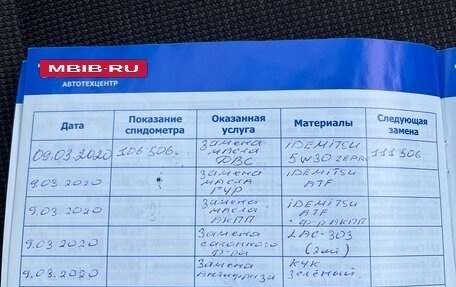 MBIB-RU
АВТОТЕХЦЕНТР
Дата Показание спидометра Оказанная услуга Материалы Следующая замена
09.03.2020 106 506 Замена масла ДВС iDEMiTSU 5W30 111 506
9.03.2020 Замена масла ГУР iDEMiTSU ATF
9.03.2020 Замена масла АКПП iDEMiTSU ATF + ф-р АКПП
9.03.2020 Замена салонного ф-ра LAC-303
9.03.2020 Замена Антифриза зелёный